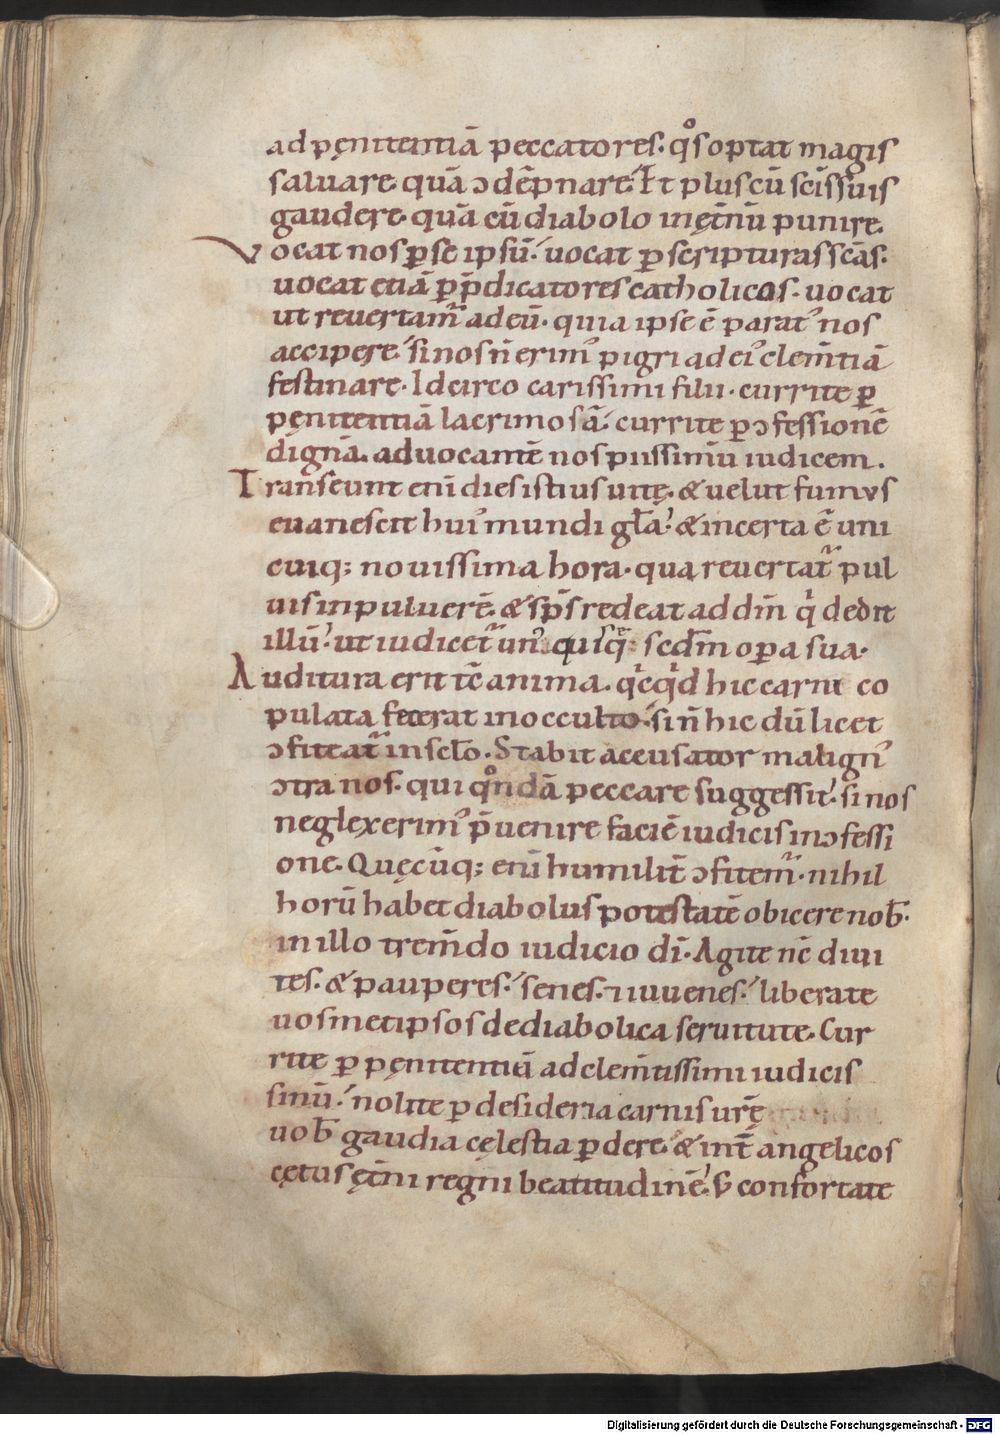 ad pęnitentiā peccatores. qͦs optat magis
saluare. quā ↄdēpnare. Et plus cū scīs suis
gaudere. quā cū diabolo in ęt̄nū punire.
Vocat nos ꝑ se ipsū. uocat ꝑ scripturas scās.
uocat etiā ꝑ p̄dicatores catholicos. uocat
ut reuertam̄ ad eū. quia ipse ē parat᾽ nos
accipere. si nos n̄ erim᾽ pigri ad ei᾽ clem̄tiā
festinare. Idcirco carissimi filii. currite ꝑ
pęnitentiā lacrimosā. currite ꝑ ↄfessionē
dignā. aduocantē nos piissimū iudicem.
Transeunt enī dies istius uitę. & uelut fumus
euanescit hui᾽ mundi gła. & incerta ē uni
cuiq; nouissima hora. qua reuertat̄ pul
uis in puluerē. & sp̄s redeat ad dm̄ qi dedit
illū. ut iudicet̄ un᾽quisq; scdm̄ oꝑa sua.
Auditura erit tē anima. qicqid hic carni co
pulata fecerat in occulto. si n̄ hic dū licet
ↄfiteat̄ in scło. Stabit accusator malign᾽
ↄtra nos. qui qͦndā peccare suggessit. si nos
neglexerim᾽ p̄uenire faciē iudicis in ↄfessi
one. Quęcūq; enī humilit̄ ↄfitem̄. nihil
horū habet diabolus potestatē obicere nob̄.
in illo trem̄do iudicio dī. Agite nē diui
tes. & pauperes. senes. ⁊ iuuenes. liberate
uosmetipsos de diabolica seruitute. Cur
rite ꝑ pęnitentiā ad clem̄tissimi iudicis
sinū. nolite ꝑ desideria carnis urę̄
uob̄ gaudia cęlestia ꝑdere. & int̄ angelicos
cętus ęt̄ni regni beatitudinē. s; confortate
Digitalisierung gefördert durch die Deutsche Forschungsgemeinschaft - DFG